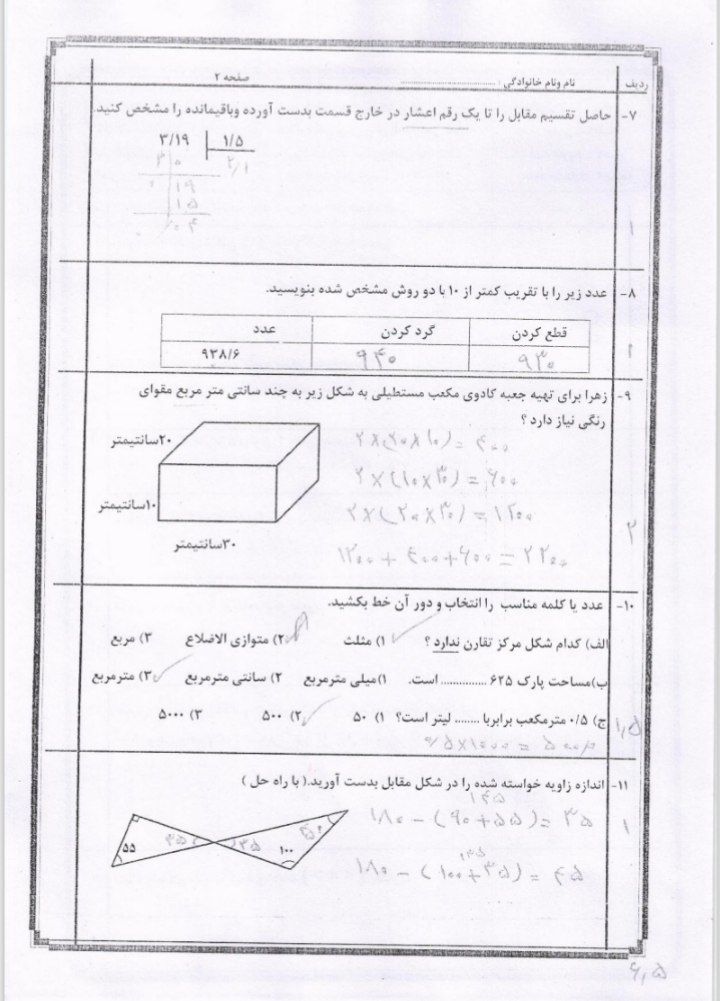 ردیف نام ونام خانوادگی : ........................ صفحه ۲
۷- حاصل تقسیم مقابل را تا یک رقم اعشار در خارج قسمت بدست آورده وباقیمانده را مشخص کنید.
۳/۱۹ ۱/۵
۳۰ ۲/۱
۱۹
۱۵
۰۴
۱
۸- عدد زیر را با تقریب کمتر از ۱۰ با دو روش مشخص شده بنویسید.
قطع کردن گرد کردن عدد
۹۳۰ ۹۴۰ ۹۳۸/۶
۱
۹- زهرا برای تهیه جعبه کادوی مکعب مستطیلی به شکل زیر به چند سانتی متر مربع مقوای
رنگی نیاز دارد ؟
۲۰سانتیمتر
۲×(۲۰×۱۰)=۴۰۰
۲×(۱۰×۳۰)=۶۰۰
۱۰سانتیمتر
۲×(۲۰×۳۰)=۱۲۰۰
۲
۳۰سانتیمتر
۱۲۰۰+۴۰۰+۶۰۰=۲۲۰۰
۱۰- عدد یا کلمه مناسب را انتخاب و دور آن خط بکشید.
الف) کدام شکل مرکز تقارن ندارد ؟ ۱) مثلث ۲) متوازی الاضلاع ۳) مربع
ب)مساحت پارک ۶۲۵ .............. است. ۱)میلی مترمربع ۲) سانتی مترمربع ۳) مترمربع
ج) ۰/۵ مترمکعب برابربا ....... لیتر است؟ ۱) ۵۰ ۲) ۵۰۰ ۳) ۵۰۰۰
۱,۵
۰/۵×۱۰۰۰=۵۰۰
۱۱- اندازه زاویه خواسته شده را در شکل مقابل بدست آورید.( با راه حل )
۱۴۵
۱۸۰-(۹۰+۵۵)=۳۵
۱
۵۵ ۳۵ ۳۵ ۱۰۰ ۴۵ ؟
۱۳۵
۱۸۰-(۱۰۰+۳۵)=۴۵
۶,۵